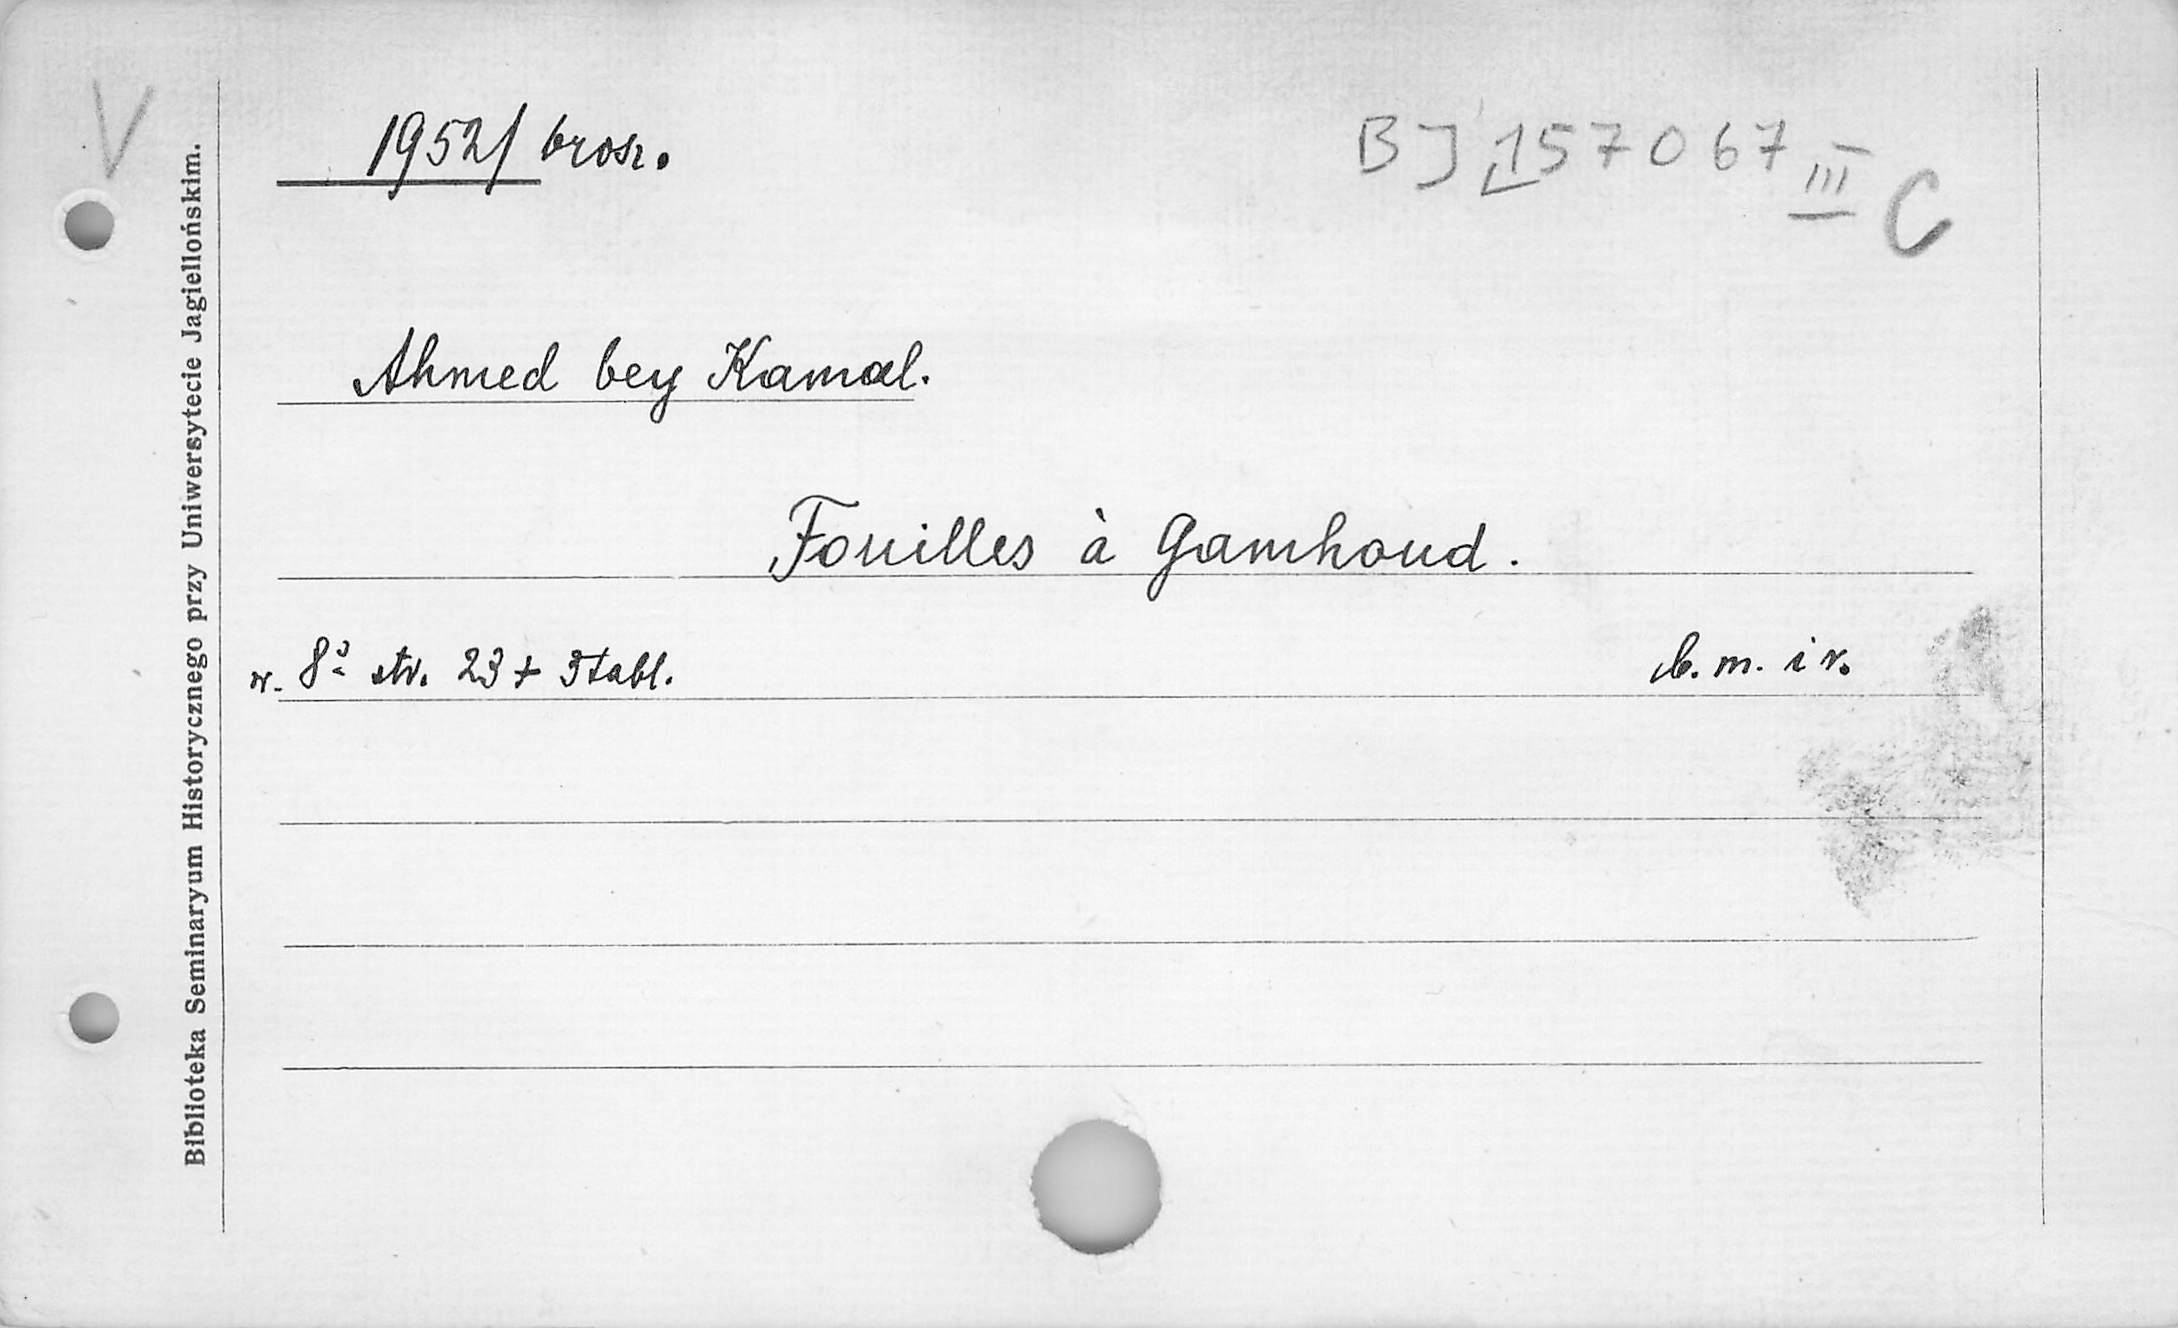 V
1952/ brosz.
BJ 157067 III C
Ahmed bey Kamal.
Fouilles à Gamhoud.
w. 8º str. 23 + 3 tabl.
b. m. i r.
Biblioteka Seminaryum Historycznego przy Uniwersytecie Jagiellońskim.